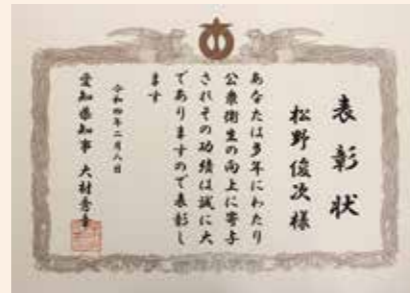 表彰状
松野俊次様
あなたは多年にわたり
公衆衛生の向上に寄与
されその功績は誠に大
でありますので表彰し
ます
令和四年二月八日
愛知県知事 大村秀章